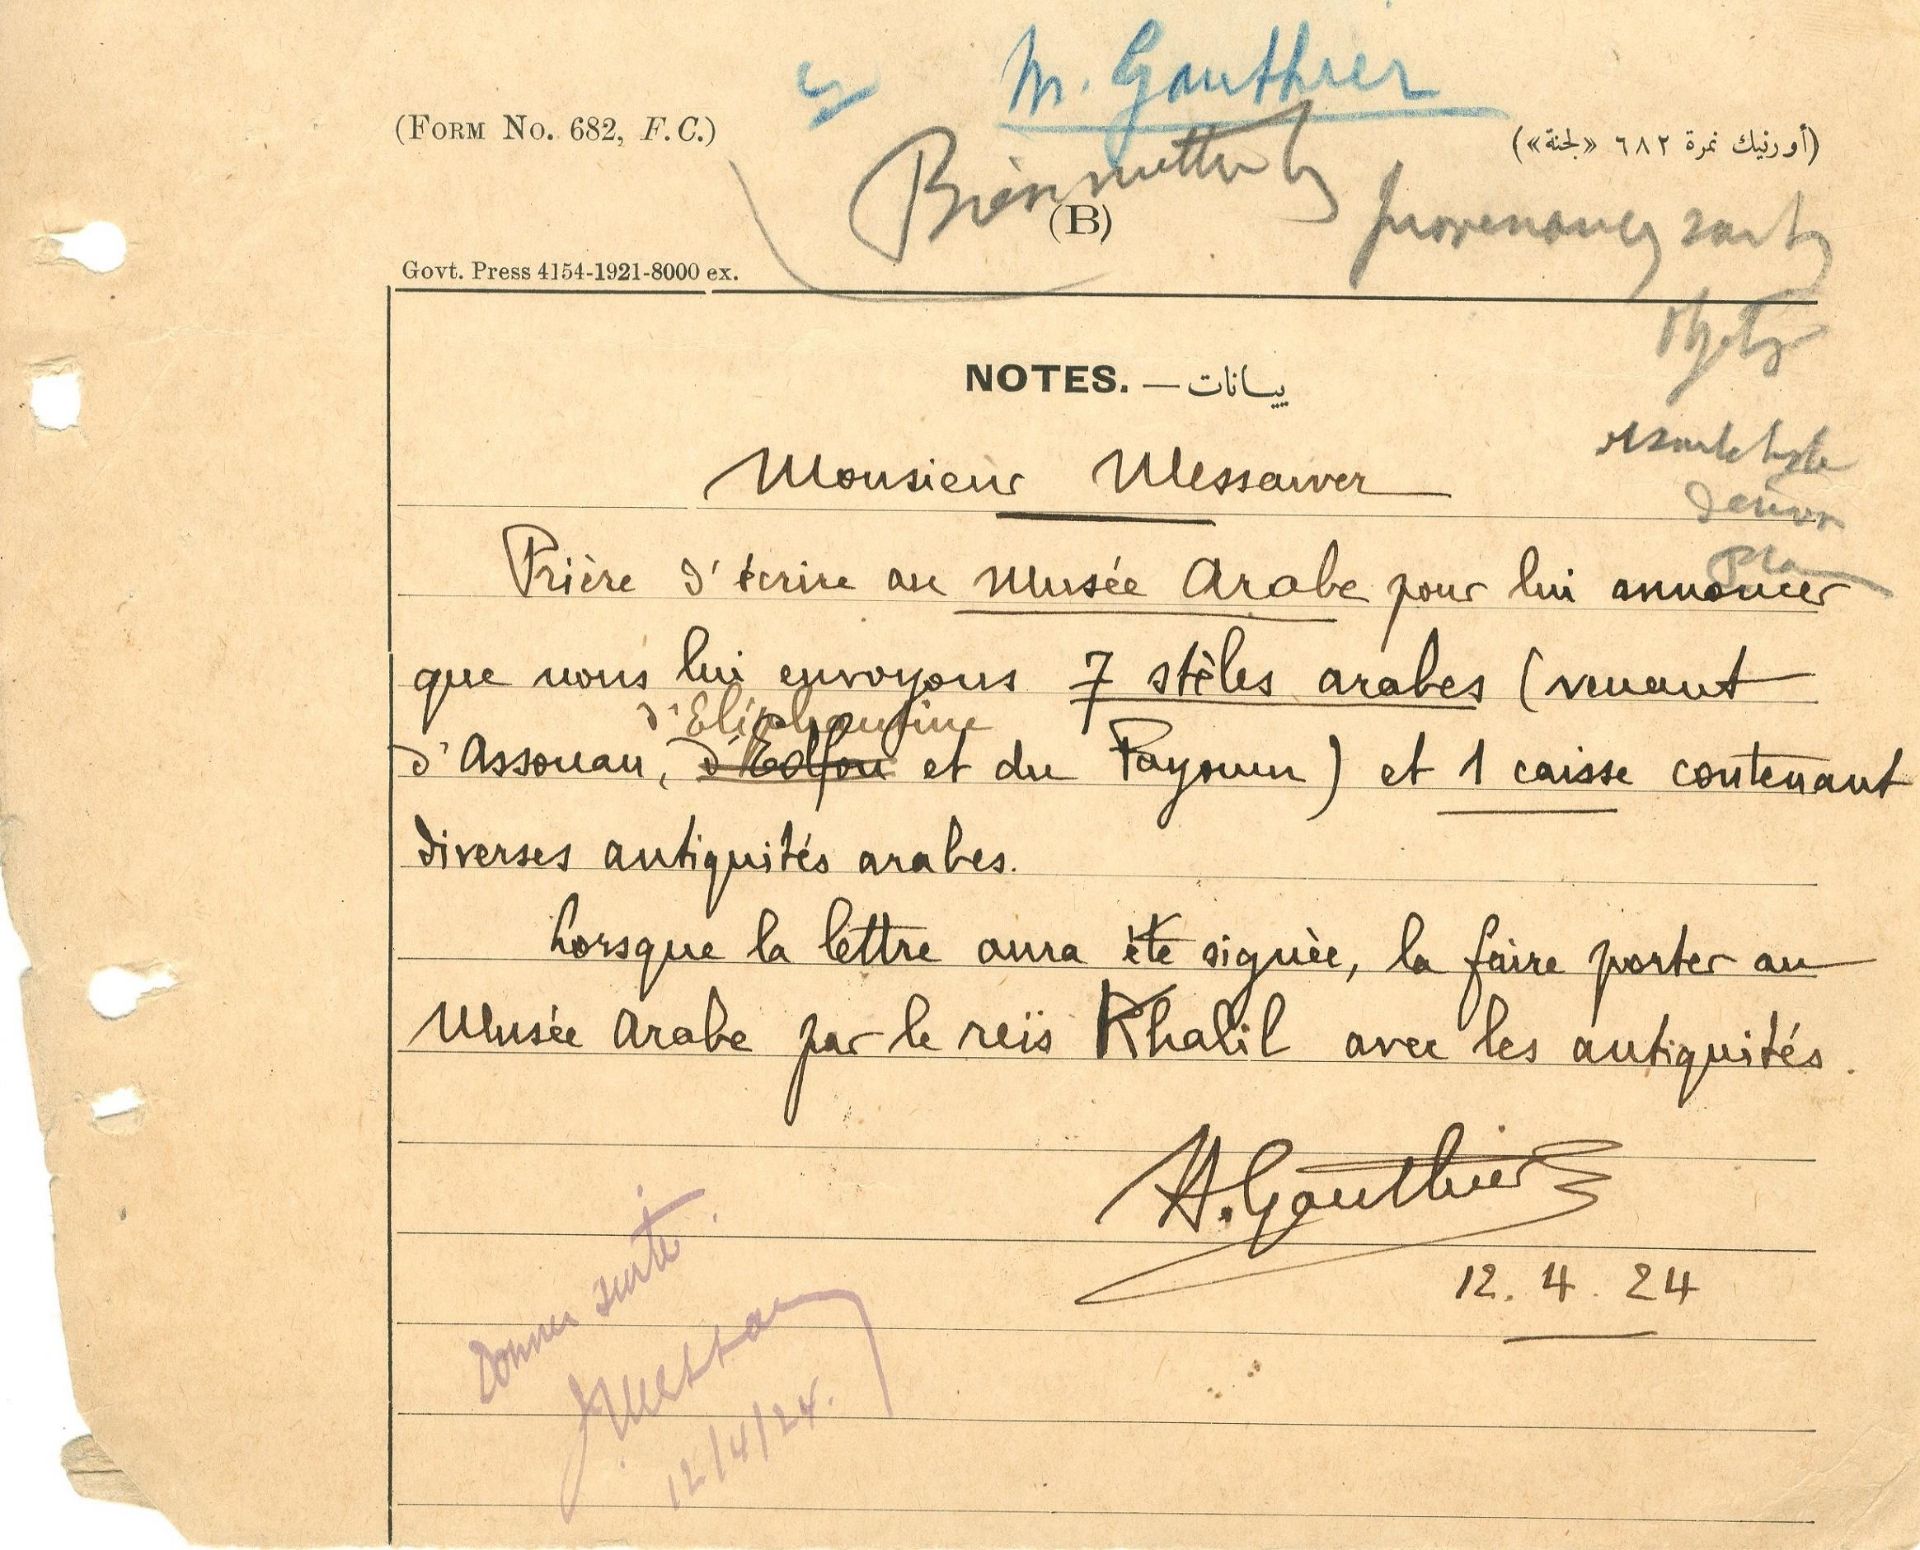 M. Gauthier
(FORM No. 682, F.C.)
(أورنيك نمرة ٦٨٢ «لجنة»)
Bien mettre les
provenances
(B)
Govt. Press 4154-1921-8000 ex.
NOTES. — بيانات
Monsieur Messawer
Prière d'écrire au Musée Arabe pour lui annoncer
que nous lui envoyons 7 stèles arabes (venant
d'Eléphantine
d'Assouan, d'Edfou et du Fayoum) et 1 caisse contenant
diverses antiquités arabes.
Lorsque la lettre aura été signée, la faire porter au
Musée Arabe par le reïs Khalil avec les antiquités.
H. Gauthier
12.4.24
Donner suite.
12/4/24.